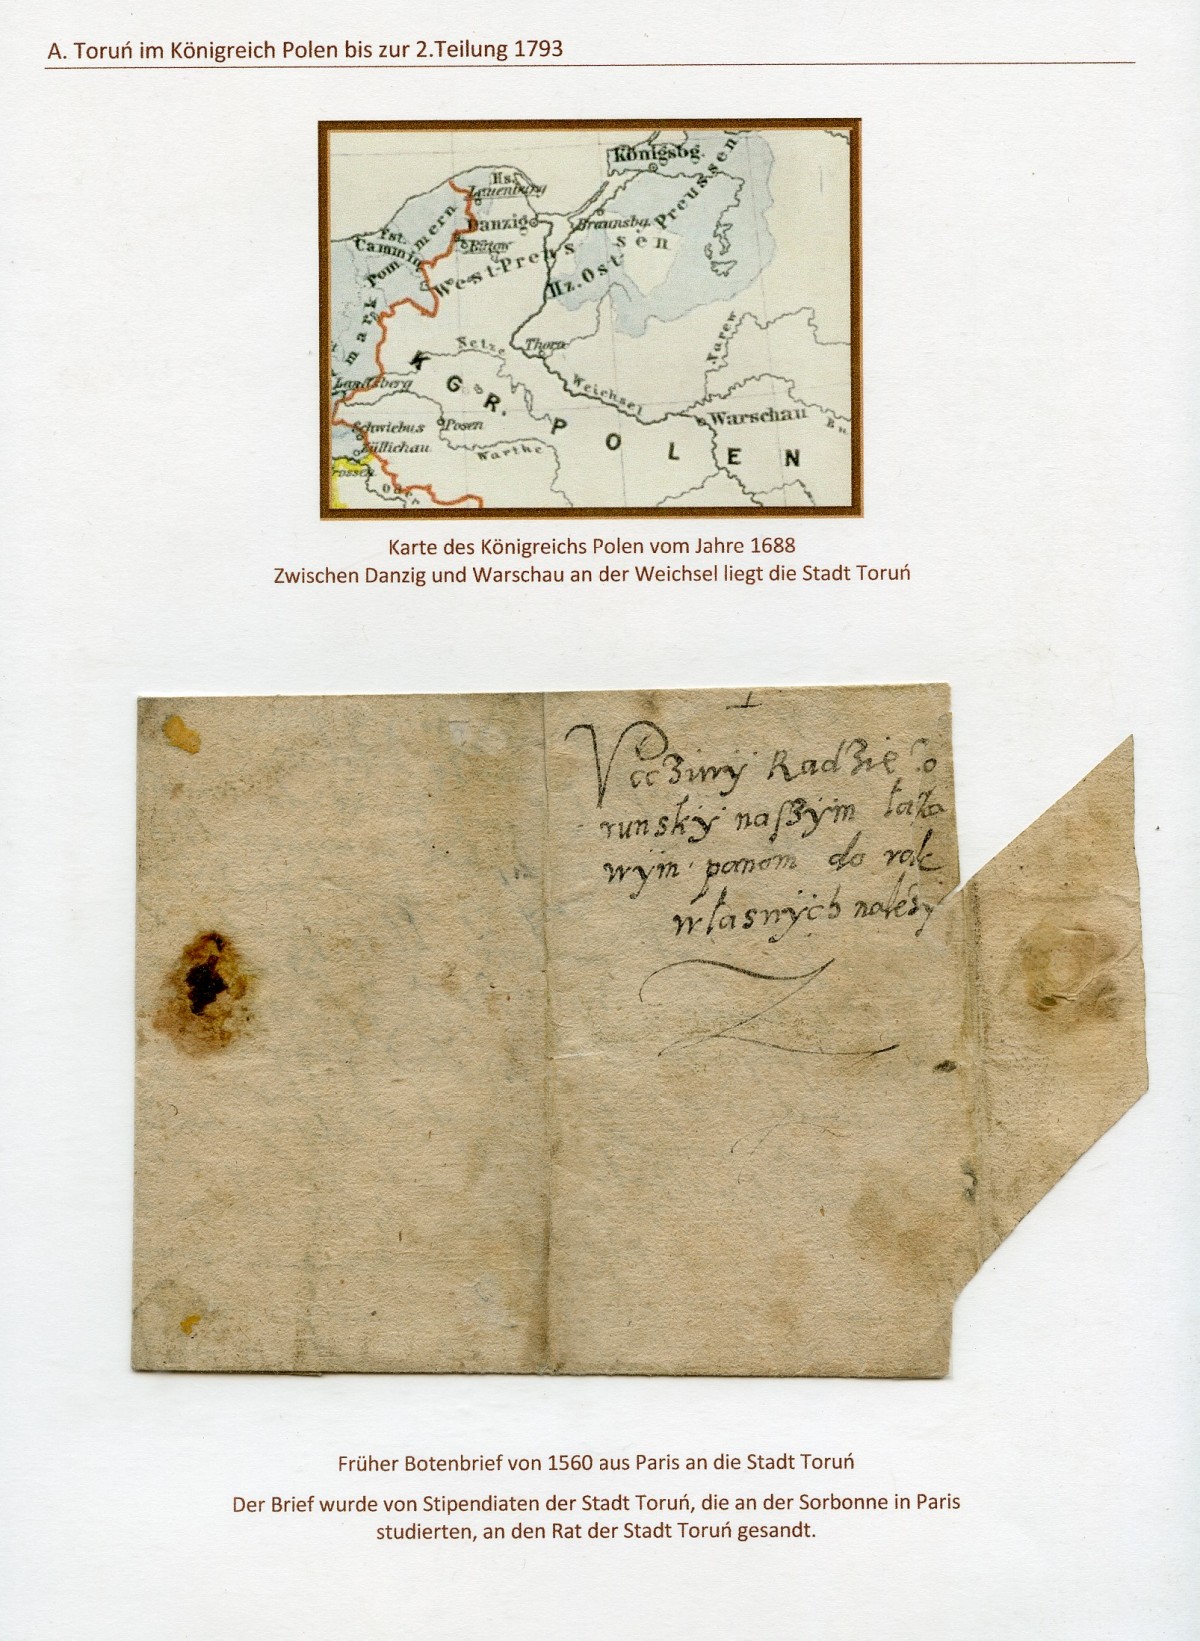 A. Toruń im Königreich Polen bis zur 2.Teilung 1793
Königsbg.
Hs.
Lauenburg
Danzig
Braunsbg.
Bütow
Fst.
Cammin
mark Pommern
West-Preussen
Hz. Ost-Preussen
Netze
Thorn
Narew
Landsberg
Weichsel
KGR. POLEN
Warschau
Bu
Schwiebus
Posen
Züllichau
Warthe
rossen
Oder
Karte des Königreichs Polen vom Jahre 1688
Zwischen Danzig und Warschau an der Weichsel liegt die Stadt Toruń
Vcc3iwÿ Rad3ie
runskÿ naſ3ÿm
wÿm panom do rak
własnÿch nale3ÿ
Früher Botenbrief von 1560 aus Paris an die Stadt Toruń
Der Brief wurde von Stipendiaten der Stadt Toruń, die an der Sorbonne in Paris
studierten, an den Rat der Stadt Toruń gesandt.